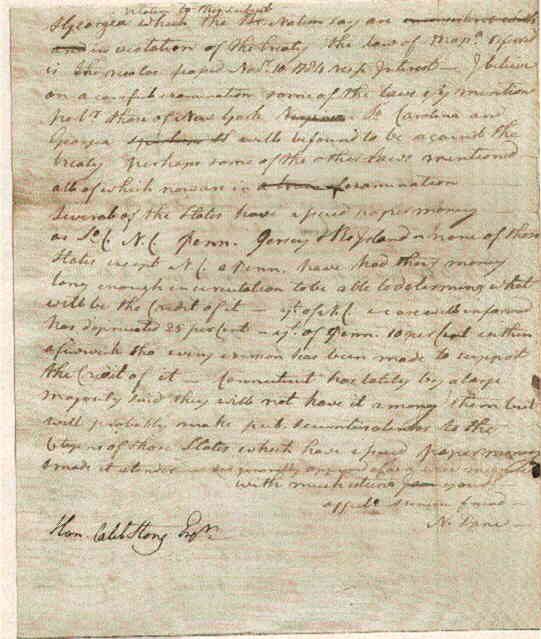 relative to
& Georgia which the Br. Nation say are
and in violation of the Treaty the law of Mass. referred
is the one passed Nov. 10 1784 resp. Interest — I believe
on a careful examination some of the laws they mention
those of New York So Carolina and
Georgia will be found to be against the
treaty perhaps some of the other laws mentioned
all of which now are in a examination
Several of the States have issued paper money
as So C. N C Penn. Jersey & Rh Island & none of those
States except N C & Penn. have had their money
long enough in circulation to be able to determine what
will be the Credit of it — yt of N C as we are well informed
has depreciated 25 per cent — yt. of Penn. 10 per Cent within
a few week tho every exertion has been made to support
the Credit of it — Connecticut has lately by a large
majority said they will not have it among them but
will probably make pub. securities a tender to the
Citizens of those States which have issued paper money
& made it a tender —
with much esteem yours
affecte. sincere friend —
N. Dane —
Hon. Caleb Strong Esqr.